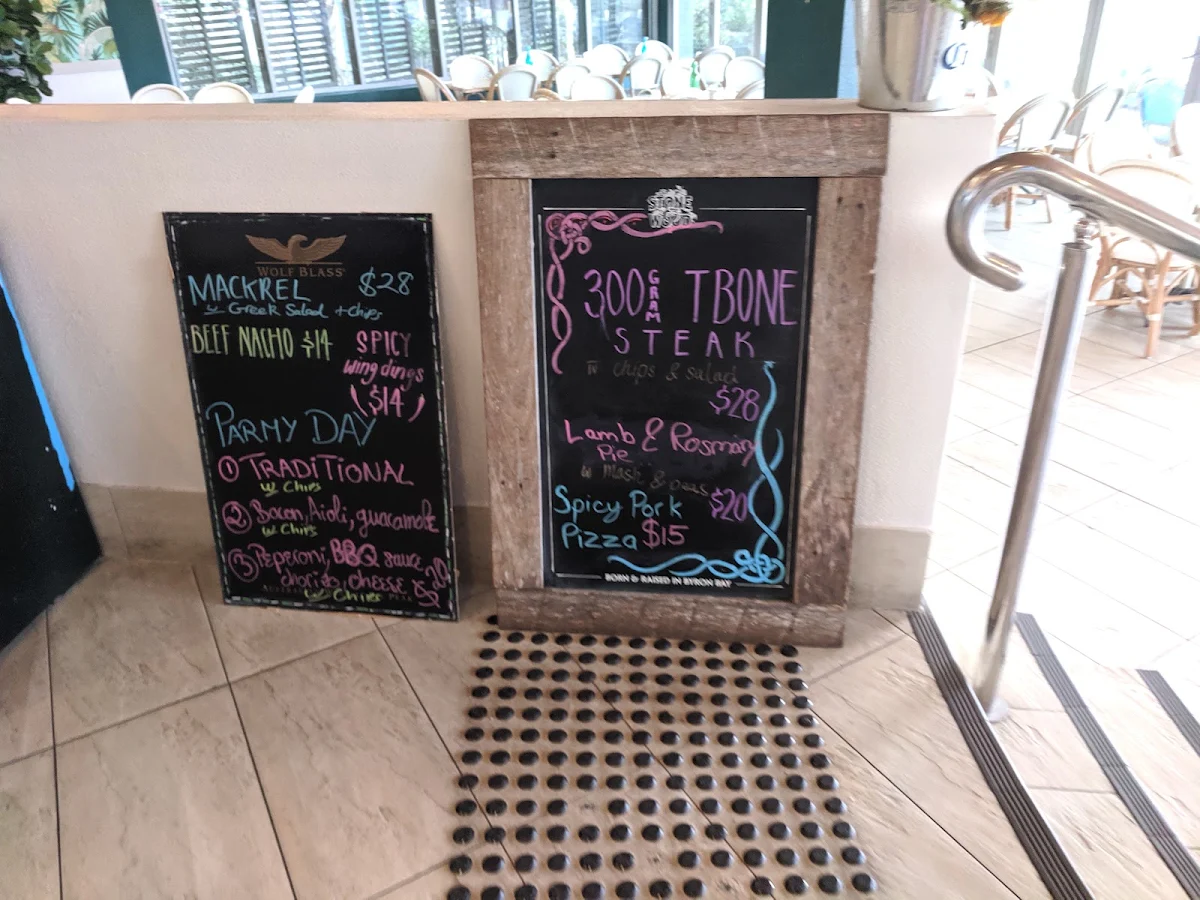 WOLF BLASS
MACKREL $28
w Greek Salad + chips
BEEF NACHO $14
SPICY
wing dings
($14)
PARMY DAY
① TRADITIONAL
w Chips
② Bacon, Aioli, guacamole
w. Chips
③ Peperoni, BBQ sauce
chorizo, cheese
w Chips
STONE
& WOOD
300 GRAM TBONE
STEAK
w chips & salad
$28
Lamb & Rosmary
Pie
w Mash & peas $20
Spicy Pork
Pizza $15
BORN & RAISED IN BYRON BAY